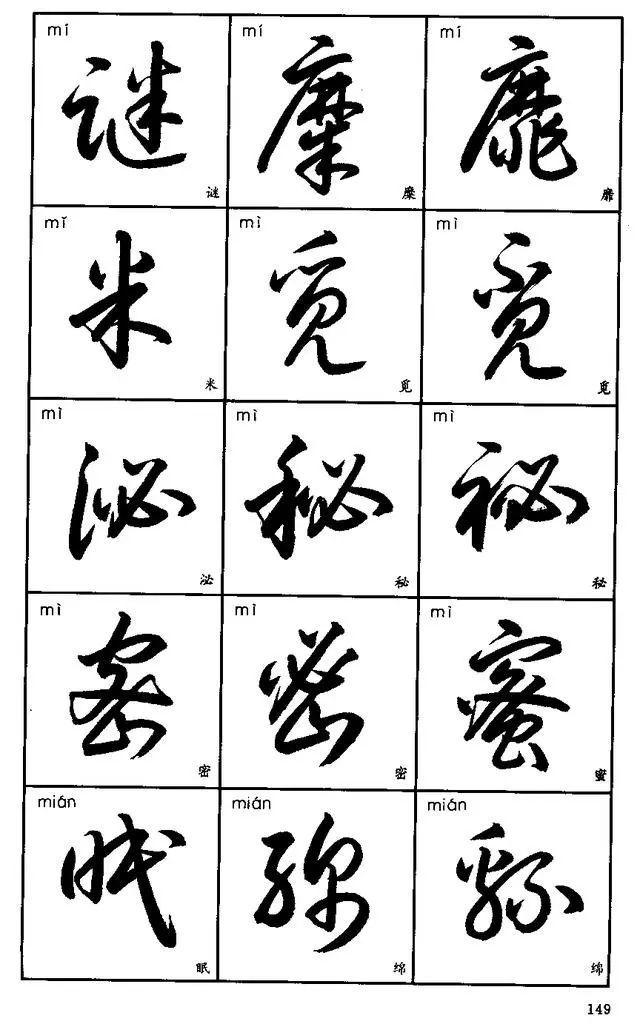 mí mí mí
谜 糜 靡
谜 糜 靡
mǐ mì mì
米 觅 觅
米 觅 觅
mì mì mì
泌 秘 祕
泌 秘 秘
mì mì mì
密 密 蜜
密 密 蜜
mián mián mián
眠 绵 绵
眠 绵 绵
149